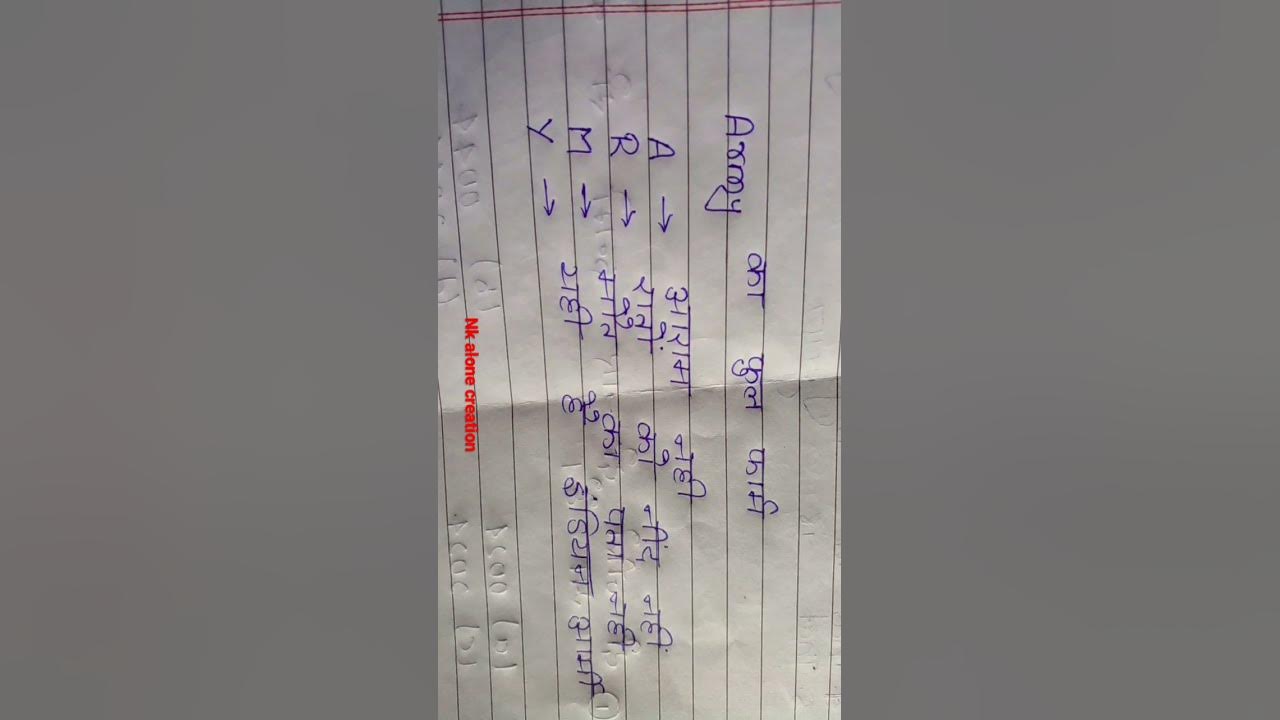 Army का फुल फार्म
A → आराम नही
R → रात्रे को नींद नहीं
M → मौत का पता नहीं
Y → यही है इंडियन आर्मी
Nk alone creation